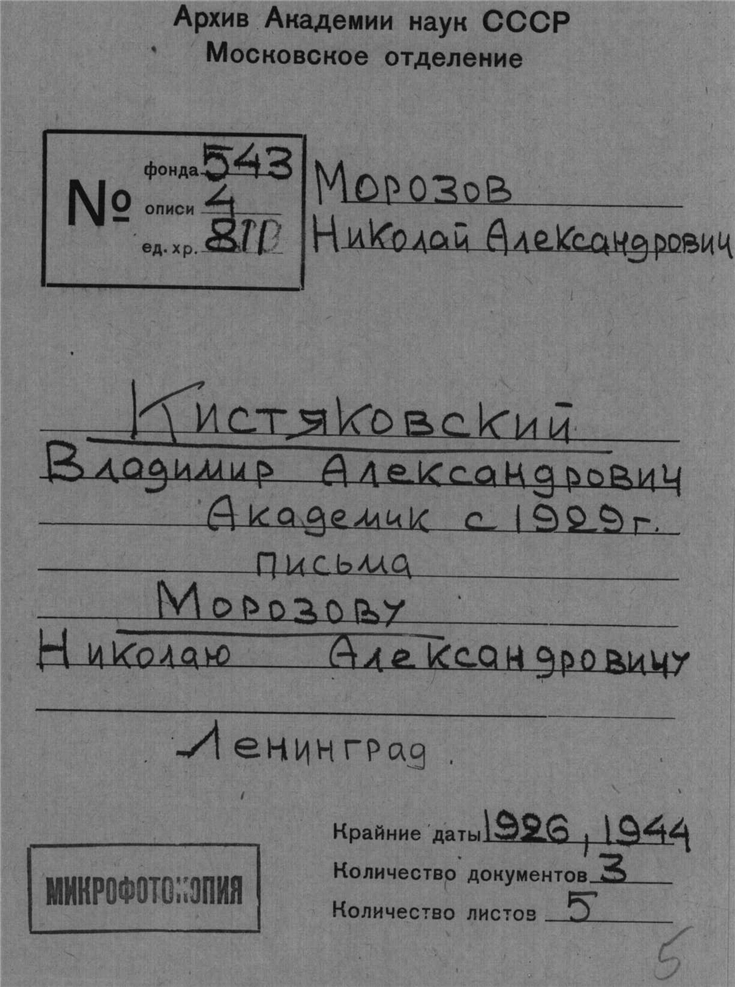 Архив Академии наук СССР
Московское отделение
№
фонда 543
описи 4
ед. хр.
Морозов
Николай Александрович
Кистяковский
Владимир Александрович
Академик с 1929 г.
письма
Морозову
Николаю Александровичу
Ленинград.
Крайние даты 1926, 1944
Количество документов 3
Количество листов 5
МИКРОФОТОКОПИЯ
5